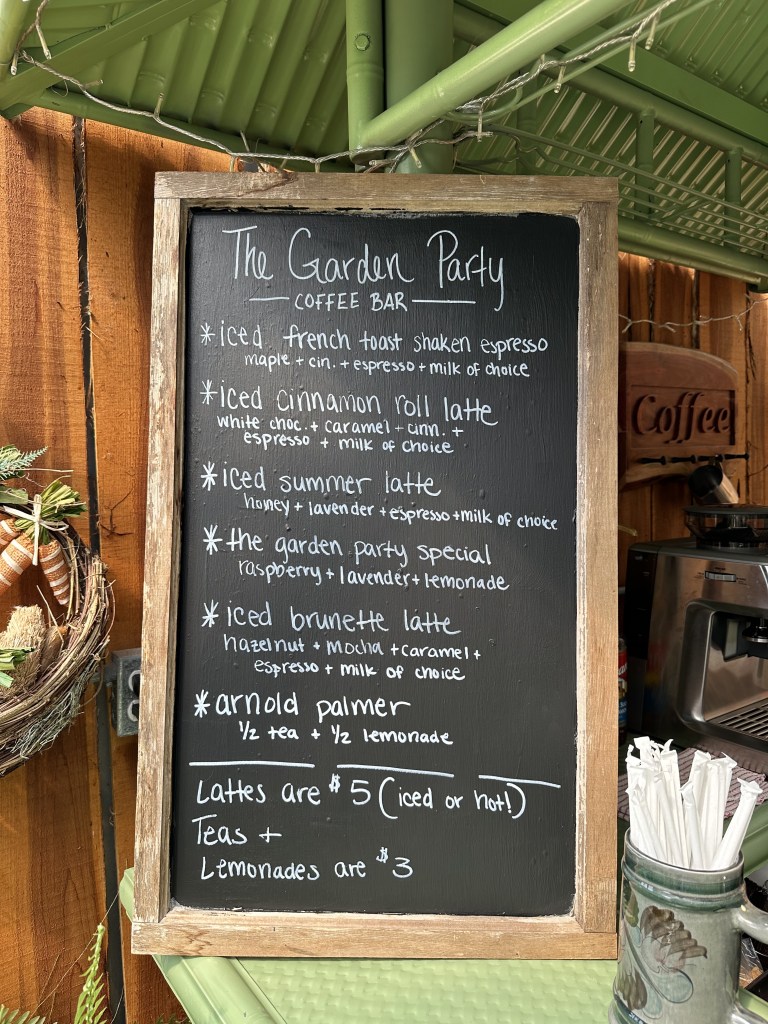 The Garden Party
COFFEE BAR
*iced french toast shaken espresso
maple + cin. + espresso + milk of choice
*iced cinnamon roll latte
white choc. + caramel + cinn. +
espresso + milk of choice
*iced summer latte
honey + lavender + espresso + milk of choice
*the garden party special
raspberry + lavender + lemonade
*iced brunette latte
hazelnut + mocha + caramel +
espresso + milk of choice
*arnold palmer
½ tea + ½ lemonade
Lattes are $5 (iced or hot!)
Teas +
Lemonades are $3
Coffee